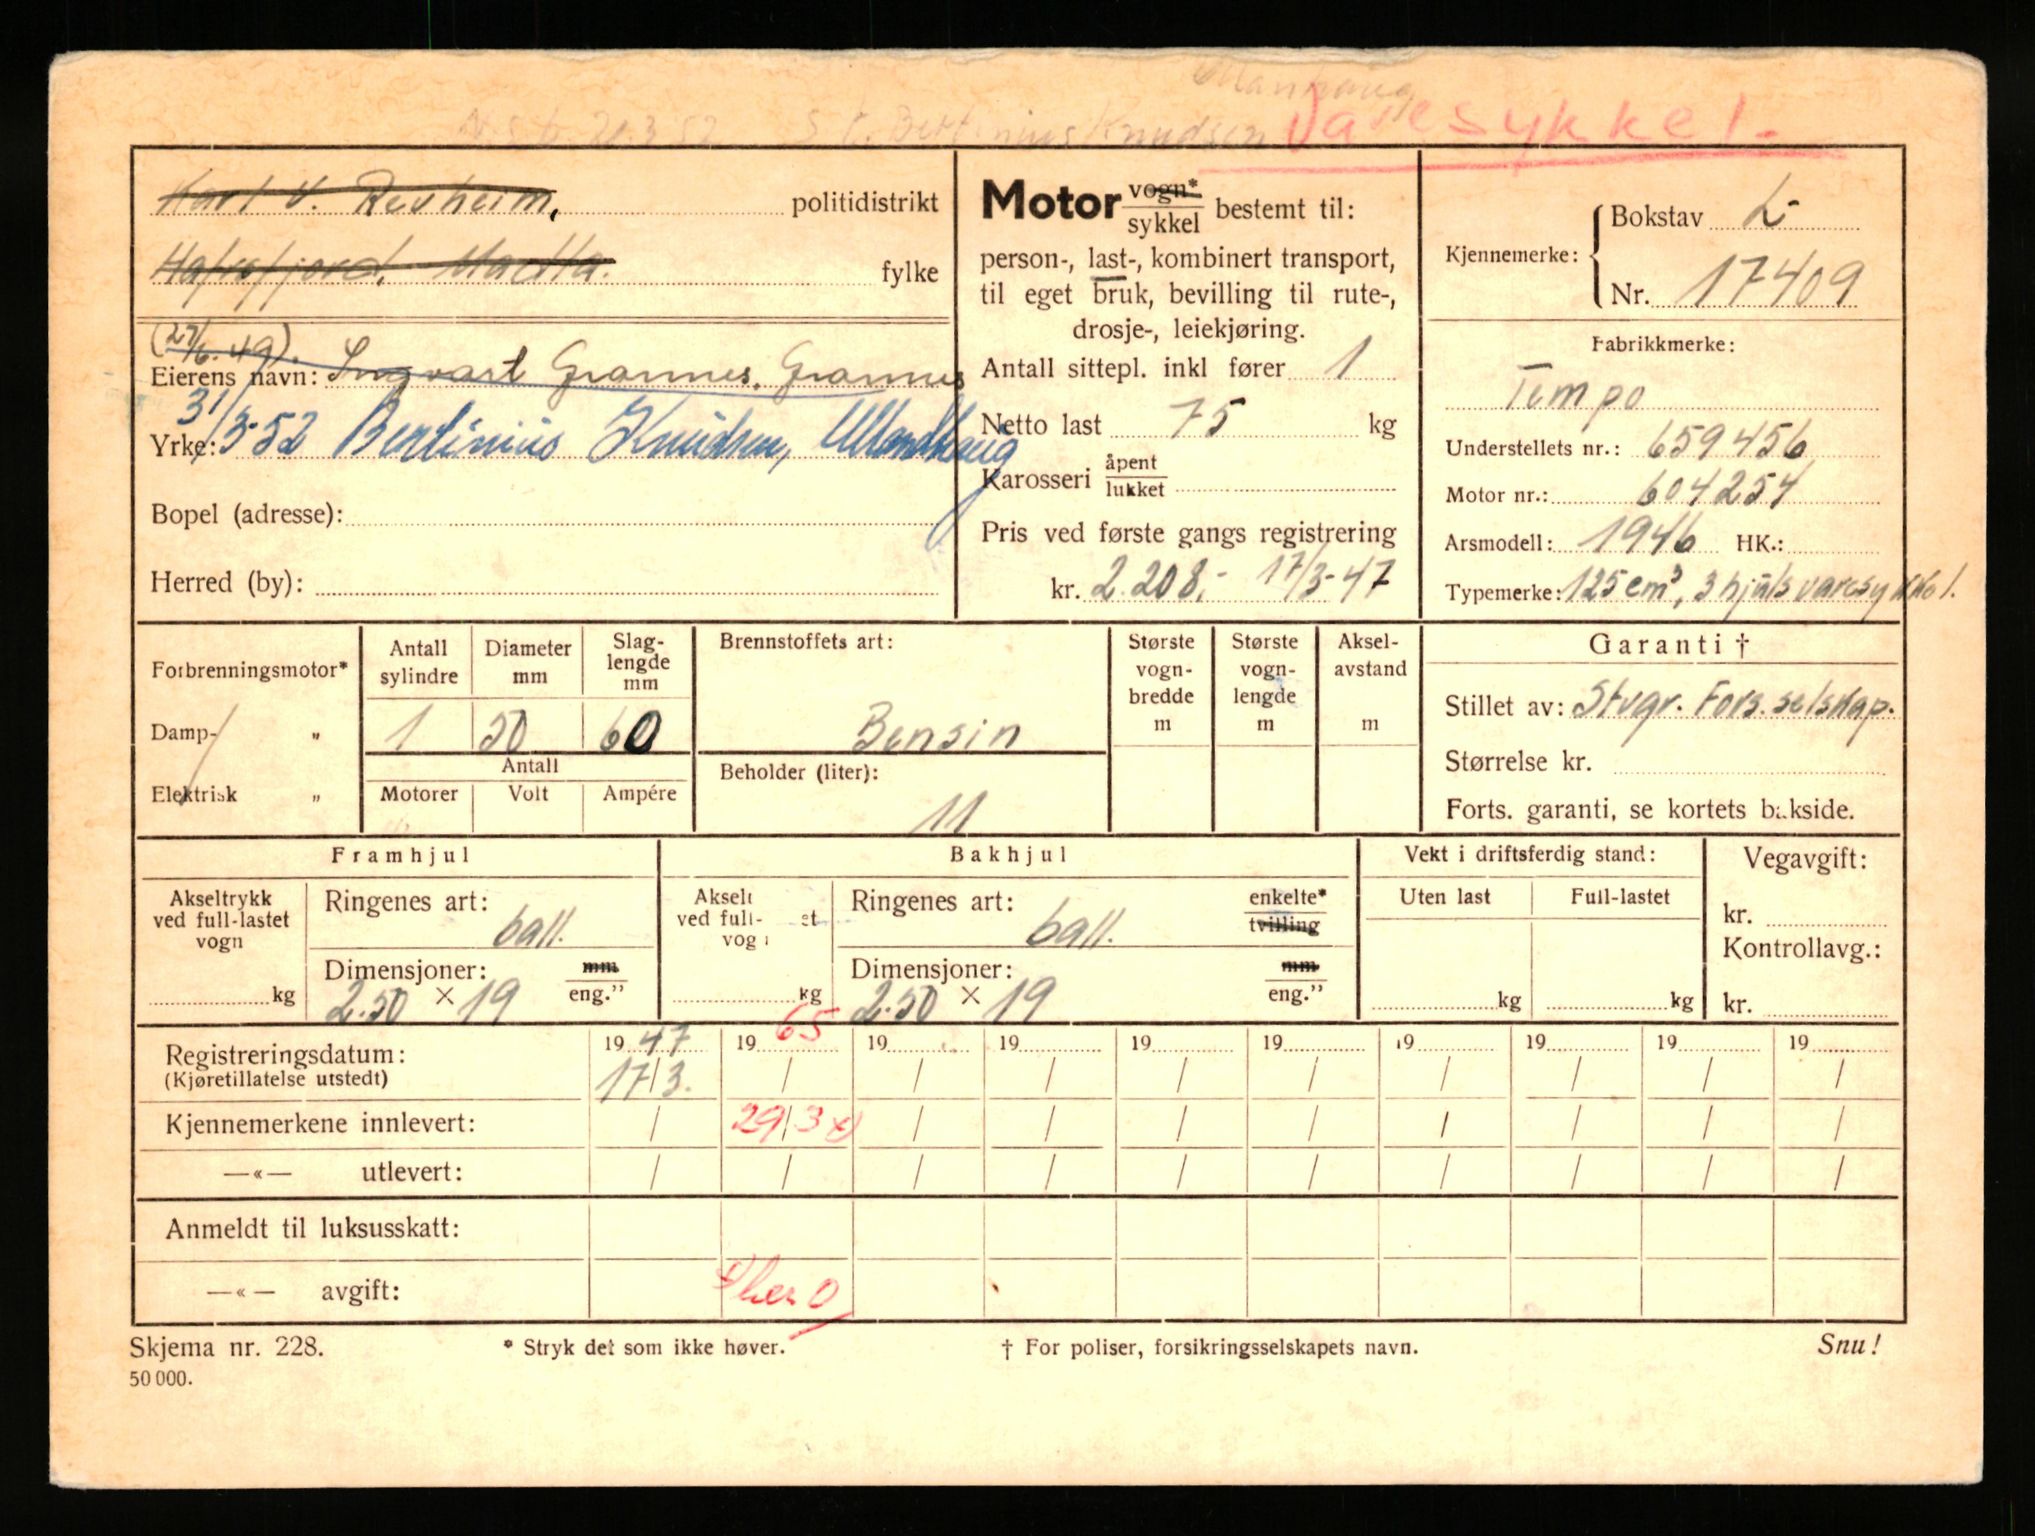 Ullandhaug
20.3.52 Bertinius Knudsen Varesykkel.
Karl V. Revheim, politidistrikt
Hafrsfjord, Madla. fylke
(27/6.49).
Eierens navn: Ingvart Grannes. Grannes
31/3-52 Bertinius Knudsen, Ullandhaug
Yrke:
Bopel (adresse):
Herred (by):
Motor vogn*/sykkel bestemt til:
person-, last-, kombinert transport,
til eget bruk, bevilling til rute-,
drosje-, leiekjøring.
Antall sittepl. inkl fører 1
Netto last 75 kg
Karosseri åpent/lukket
Pris ved første gangs registrering
kr. 2.208,- 17/3-47
Kjennemerke: Bokstav L-
Nr. 17409
Fabrikkmerke:
Tempo
Understellets nr.: 659456
Motor nr.: 604254
Arsmodell: 1946 HK.:
Typemerke: 125 cm³, 3 hjuls varesykkel.
Forbrenningsmotor*
Damp- „
Elektrisk „
Antall sylindre
1
Diameter mm
50
Slag-lengde mm
60
Antall
Motorer Volt Ampére
Brennstoffets art:
Bensin
Beholder (liter):
11
Største vogn-bredde m
Største vogn-lengde m
Aksel-avstand m
Garanti †
Stillet av: Stvgr. Fors.selskap.
Størrelse kr.
Forts. garanti, se kortets bakside.
Framhjul
Akseltrykk ved full-lastet vogn
kg
Ringenes art:
ball.
Dimensjoner: mm/eng.”
2.50 × 19
Bakhjul
Akselt
ved full- et
vog
kg
Ringenes art: enkelte*/tvilling
ball.
Dimensjoner: mm/eng.”
2.50 × 19
Vekt i driftsferdig stand:
Uten last Full-lastet
kg kg
Vegavgift:
kr.
Kontrollavg.:
kr.
Registreringsdatum: 19 47 19 65 19 19 19 19 19 19 19 19
(Kjøretillatelse utstedt) 17/3. / / / / / / / / /
Kjennemerkene innlevert: / 29/3 x) / / / / / / / /
—«— utlevert: / / / / / / / / / /
Anmeldt til luksusskatt:
—«— avgift:
Skjema nr. 228. * Stryk det som ikke høver. † For poliser, forsikringsselskapets navn. Snu!
50 000.